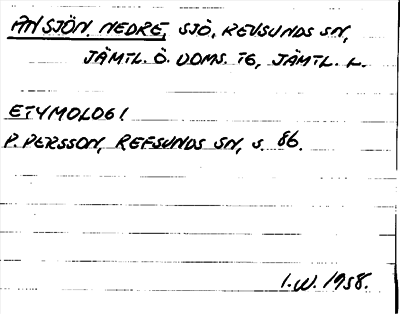 ANSJÖN, NEDRE, SJÖ, REVSUNDS SN,
JÄMTL. Ö. DOMS. TG, JÄMTL. L.
ETYMOLOGI
P. PERSSON, REFSUNDS SN, S. 86.
I.W. 1958.